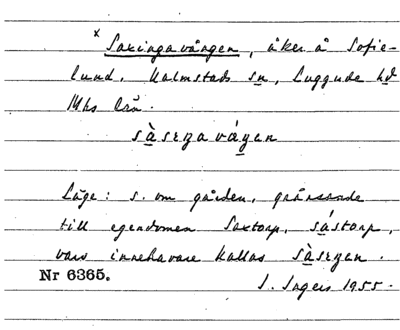 x Saxingavången, åker å Sofie-
lund, Kalmstads sn, Luggude hd
Mhs län.
sàsrgavágen
Läge: s. om gården, gränsande
till egendomen Saxtorp, sástorp,
vars innehavare kallas sàsrgan.
Nr 6365.
I. Ingers 1955.